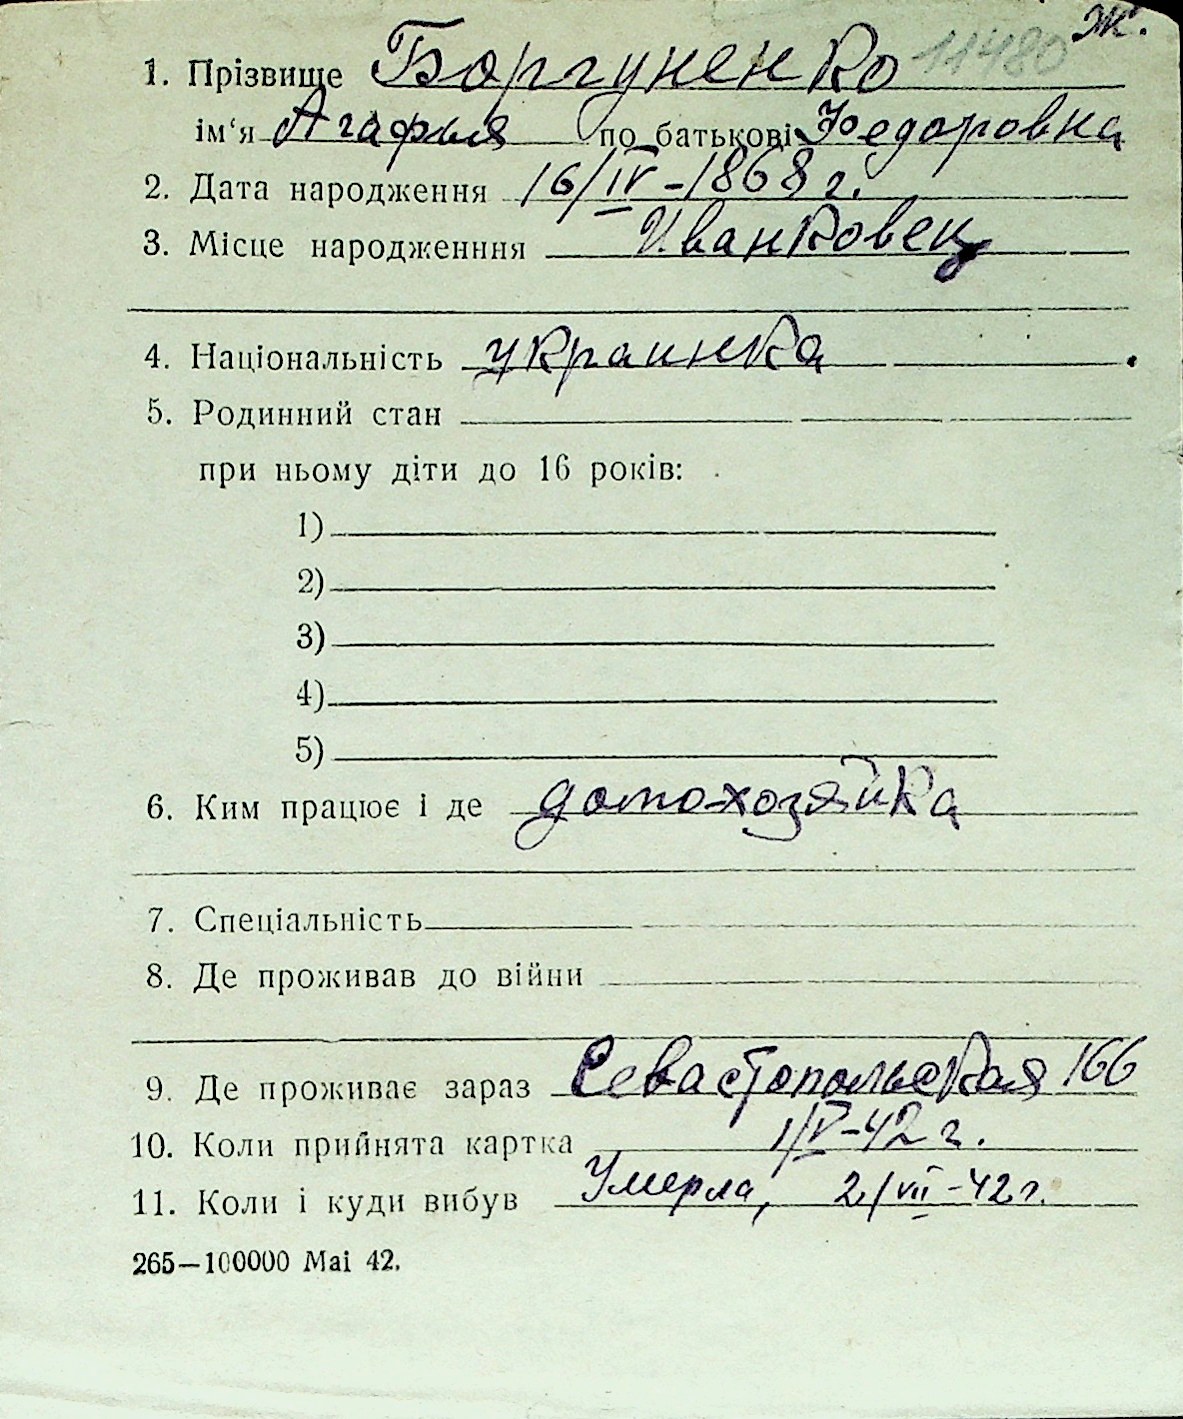 Ж.
1. Прізвище Боргуненко 11480
ім‘я Агафья по батькові Федоровна
2. Дата народження 16/IV-1868 г.
3. Місце народженння Иванковец
4. Національність украинка
5. Родинний стан
при ньому діти до 16 років:
1)
2)
3)
4)
5)
6. Ким працює і де домохозяйка
7. Спеціальність
8. Де проживав до війни
9. Де проживає зараз Севастопольская 166
10. Коли прийнята картка 1/V-42 г.
11. Коли і куди вибув Умерла, 2/VII-42 г.
265—100000 Mai 42.